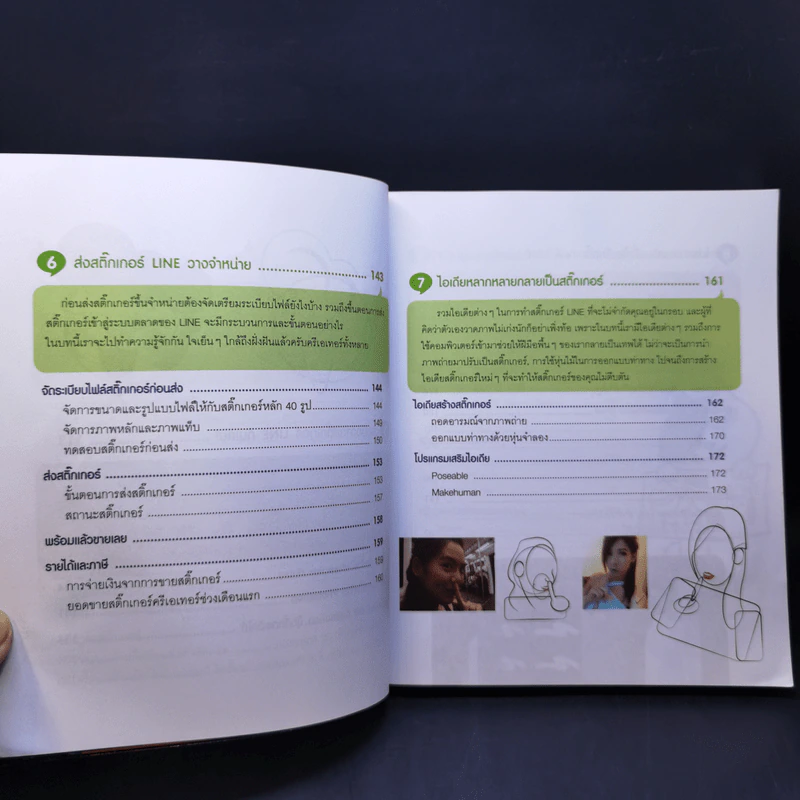 6 ส่งสติ๊กเกอร์ LINE วางจำหน่าย 143
ก่อนส่งสติ๊กเกอร์ขึ้นจำหน่ายต้องจัดเตรียมระเบียบไฟล์ยังไงบ้าง รวมถึงขั้นตอนการส่ง
สติ๊กเกอร์เข้าสู่ระบบตลาดของ LINE จะมีกระบวนการและขั้นตอนอย่างไร
ในบทนี้เราจะไปทำความรู้จักกัน ใจเย็นๆ ใกล้ถึงฝั่งฝันแล้วครับครีเอเทอร์ทั้งหลาย
จัดระเบียบไฟล์สติ๊กเกอร์ก่อนส่ง 144
จัดการขนาดและรูปแบบไฟล์ให้กับสติ๊กเกอร์หลัก 40 รูป 144
จัดการภาพหลักและภาพแท็บ 149
ทดสอบสติ๊กเกอร์ก่อนส่ง 150
ส่งสติ๊กเกอร์ 153
ขั้นตอนการส่งสติ๊กเกอร์ 153
สถานะสติ๊กเกอร์ 157
พร้อมแล้วขายเลย 158
รายได้และภาษี 159
การจ่ายเงินจากการขายสติ๊กเกอร์ 159
ยอดขายสติ๊กเกอร์ครีเอเทอร์ช่วงเดือนแรก 160
7 ไอเดียหลากหลายกลายเป็นสติ๊กเกอร์ 161
รวมไอเดียต่างๆ ในการทำสติ๊กเกอร์ LINE ที่จะไม่จำกัดคุณอยู่ในกรอบ และผู้ที่
คิดว่าตัวเองวาดภาพไม่เก่งนักก็อย่าเพิ่งท้อ เพราะในบทนี้เรามีไอเดียต่างๆ รวมถึงการ
ใช้คอมพิวเตอร์เข้ามาช่วยให้ฝีมือพื้นๆ ของเรากลายเป็นเทพได้ ไม่ว่าจะเป็นการนำ
ภาพถ่ายมาปรับเป็นสติ๊กเกอร์, การใช้หุ่นไม้ในการออกแบบท่าทาง ไปจนถึงการสร้าง
ไอเดียสติ๊กเกอร์ใหม่ๆ ที่จะทำให้สติ๊กเกอร์ของคุณไม่ตีบตัน
ไอเดียสร้างสติ๊กเกอร์ 162
ถอดอารมณ์จากภาพถ่าย 162
ออกแบบท่าทางด้วยหุ่นจำลอง 170
โปรแกรมเสริมไอเดีย 172
Poseable 172
Makehuman 173